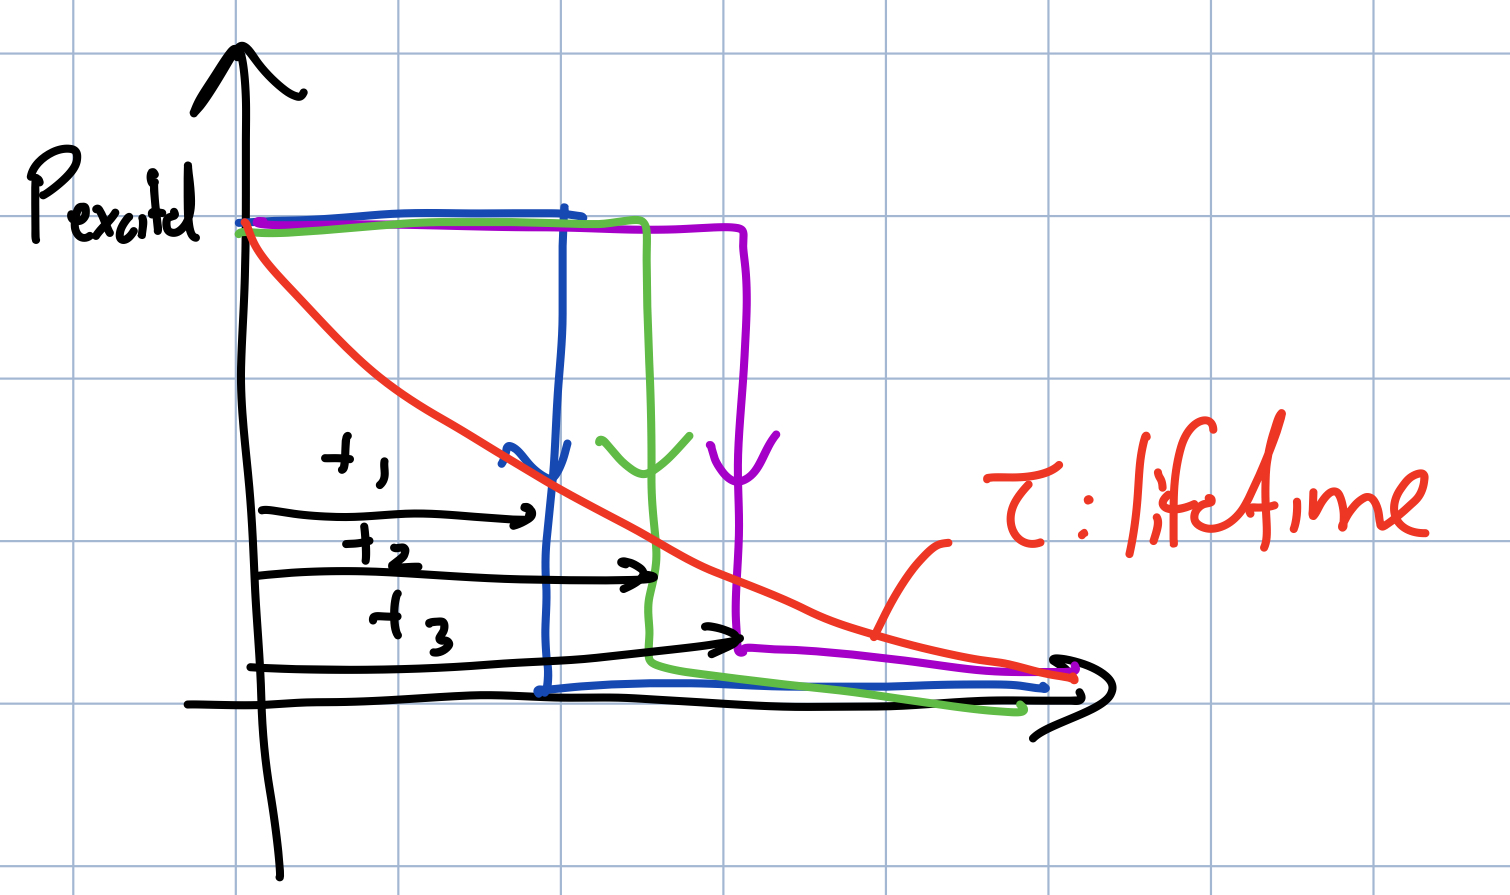 Pexcited
t1
t2
t3
τ: lifetime